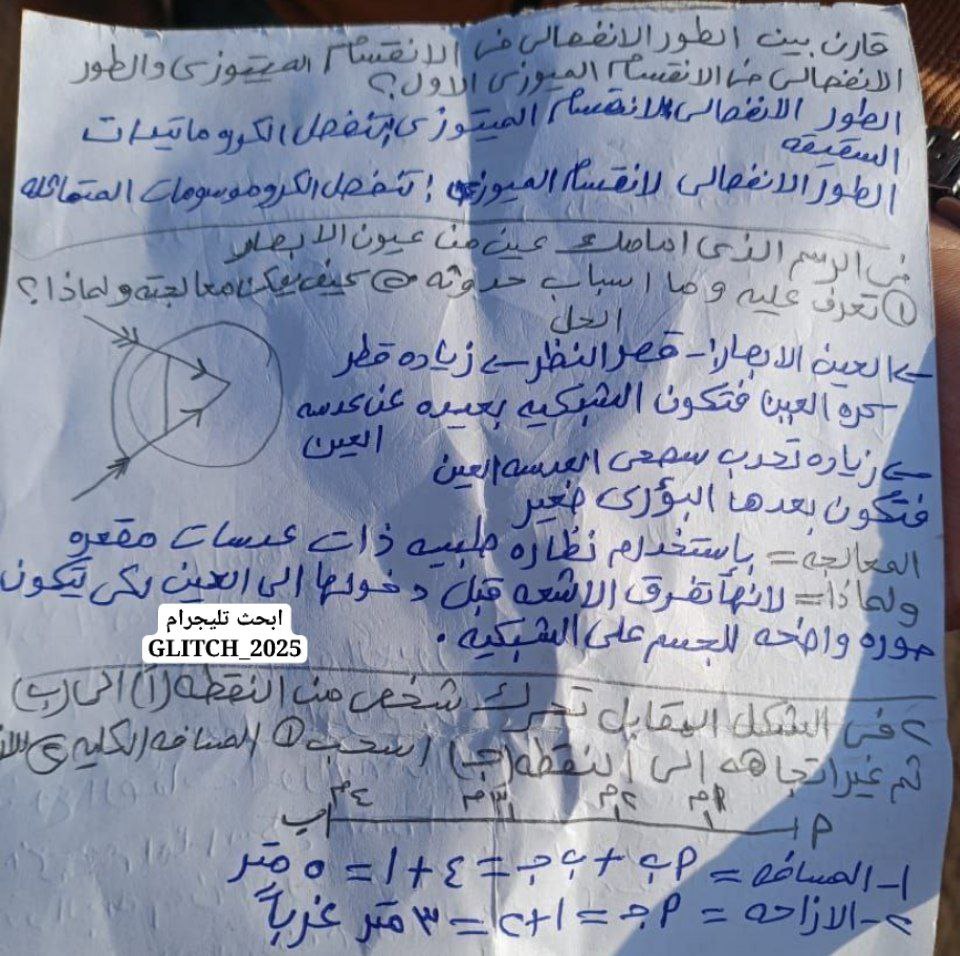 قارن بين الطور الانفصالى فى الانقسام الميتوزى والطور
الانفصالى من الانقسام الميوزى الاول؟
الطور الانفصالى للانقسام الميتوزى: تنفصل الكروماتيدات
الشقيقه
الطور الانفصالى لانقسام الميوزى: تنفصل الكروموسومات المتماثله
فى الرسم الذى امامك عين من عيون الابصار
① تعرف عليه وما اسباب حدوثه ② كيف يمكن معالجته ولماذا؟
الحل
← العين الابصار:- قصر النظر ← زياده قطر
كره العين فتكون الشبكيه بعيده عن عدسه
العين
← زياده تحدب سطحى العدسه العين
فتكون بعدها البؤرى صغير
المعالجه = بإستخدام نظاره طبيه ذات عدسات مقعره
ولماذا = لانها تفرق الاشعه قبل دخولها الى العين لكى تتكون
صوره واضحه للجسم على الشبكيه .
ابحث تليجرام
GLITCH_2025
٢ فى الشكل المقابل تحرك شخص من النقطه (أ) الى (ب)
ثم غير اتجاهه الى النقطه (جـ) احسب ① المسافه الكليه ②
أ ١م ٢م ٣م ٤م ب
١- المسافه = أب + ب جـ = ٤ + ١ = ٥ متر
٢- الازاحه = أجـ = ١+٢ = ٣ متر غرباً